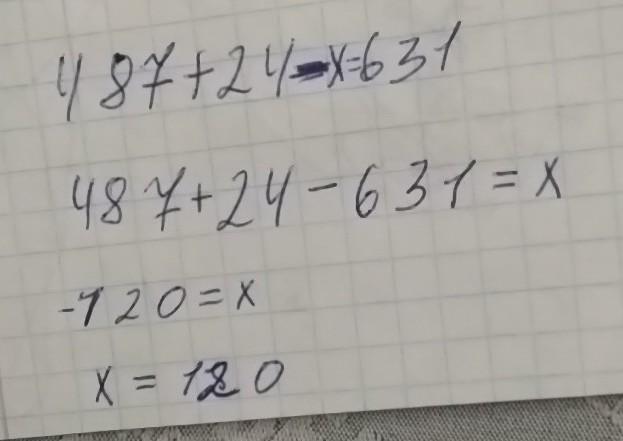 487+24-x=631
487+24-631=x
-120=x
x=120